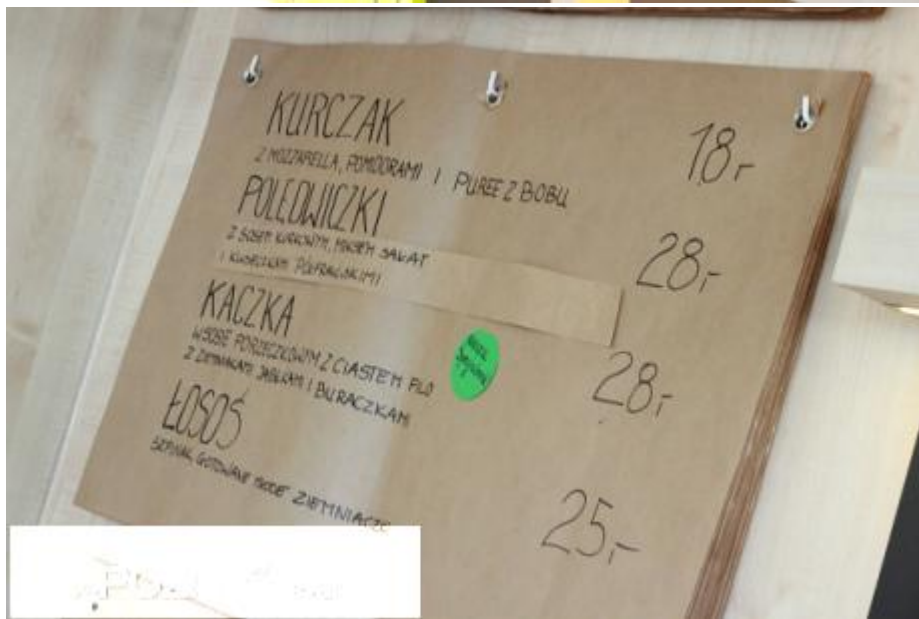 KURCZAK 18,-
Z MOZZARELLA, POMIDORAMI I PUREE Z BOBU
POLĘDWICZKI 28,-
Z SOSEM KURKOWYM, MIKSEM SAŁAT
I KLUSECZKAMI PÓŁFRANCUSKIMI
KACZKA 28,-
W SOSIE PORZECZKOWYM Z CIASTEM FILO
Z ZIEMNIAKAMI JABŁKAMI I BURACZKAMI
ŁOSOŚ 25,-
SZPINAK, GOTOWANE MŁODE ZIEMNIACZKI